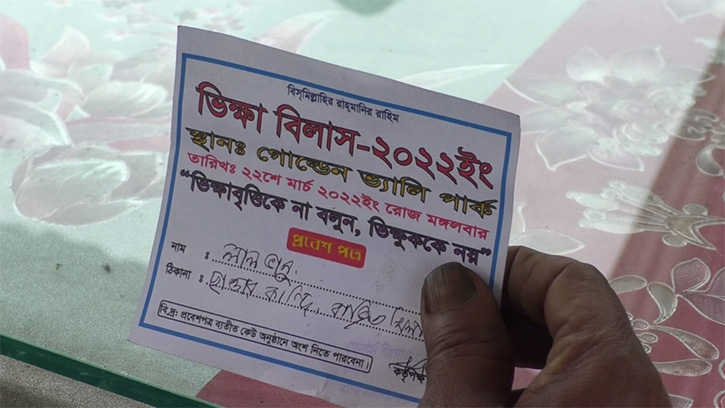 বিস্‌মিল্লাহির রাহ্‌মানির রাহিম
ভিক্ষা বিলাস-২০২২ইং
স্থানঃ গোল্ডেন ভ্যালি পার্ক
তারিখঃ ২২শে মার্চ ২০২২ইং রোজ মঙ্গলবার
“ভিক্ষাবৃত্তিকে না বলুন, ভিক্ষুককে নয়”
প্রবেশ পত্র
নাম : লাল ভানু
ঠিকানা :
বি.দ্র: প্রবেশপত্র ব্যতীত কেউ অনুষ্ঠানে অংশ নিতে পারবেনা।
কর্তৃপক্ষ